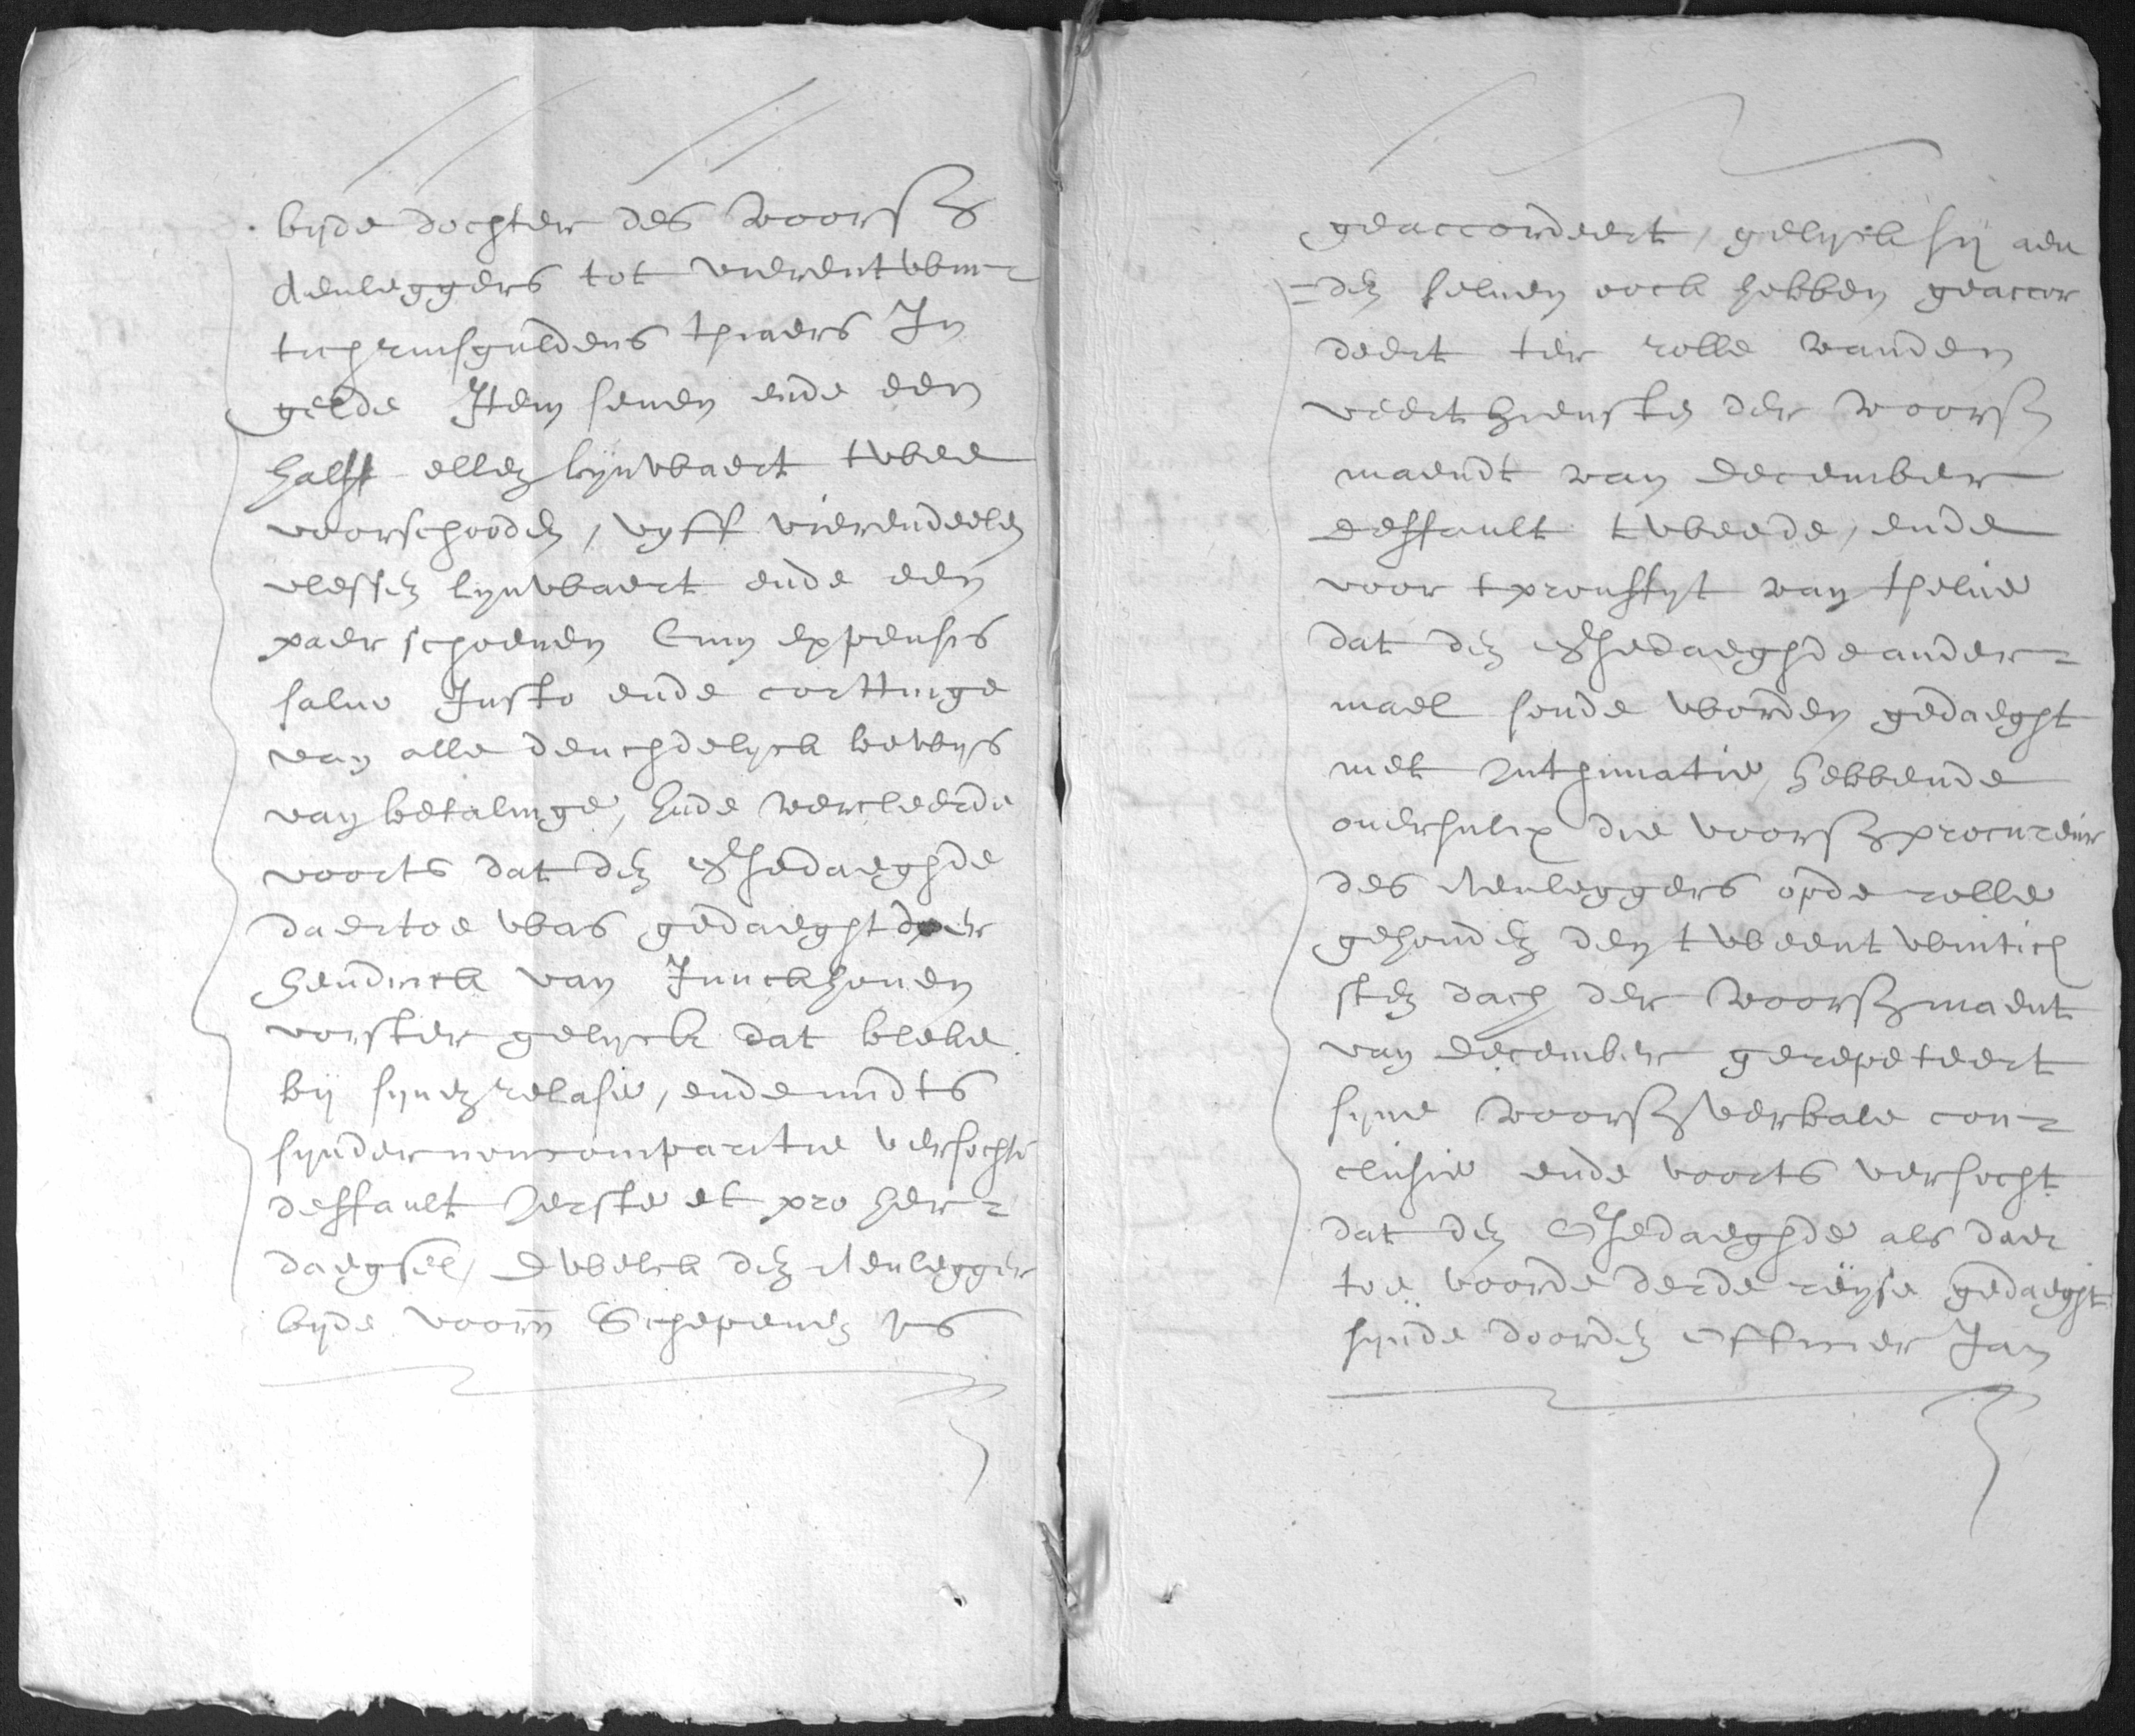 byde dochter des voors
Aenleggers tot vierentwin¬
tich rinsguldens tsiaers In
gelde Item seuen ende een
halff ellen lynwaert twee
voorschooden, vyff vierendeelen
vlessen lynwaert ende een
paer schoenen Cum expensis
saluo Justo ende corttinge
van alle deuchdelyck bewys
van betalinge, Ende vercleerde
voorts dat den Ghedaeghde
daertoe was gedaeght door
Hendrick van Jnnckhouen
vorster gelyck dat bleke
by synen relase, ende midts
synder noncomparitie versocht
deffault Ierste et pro her¬
daeghsel, Dwelck den Aenlegger
byde voorn Schepenen is
geaccordeert, gelyck sy aen
=den seluen oock hebben geaccor
deert ter rolle vanden
veerthienste der voors
maendt van december
deffault tweede, ende
voor tprouffyt van tselue
dat den Ghedaeghde ander¬
mael soude worden gedaeght
met Inthimatie, hebbende
ouersulcx die voors procureur
des Aenleggers opde rolle
gehouden den tweentwintich
sten dach der voors maent
van december gerepeteert
syne voors verbale con¬
clusie ende voorts versocht
dat den Ghedaeghde als daer
toe voorde derde reyse gedaeght
synde doorden officier Jan